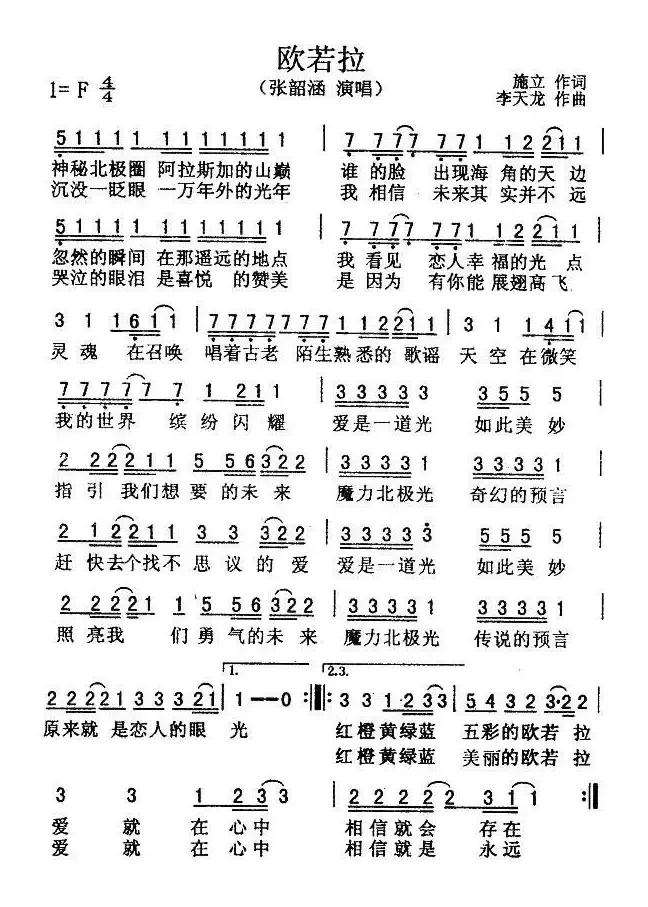 欧若拉
1= F 4/4
（张韶涵 演唱）
施立 作词
李天龙 作曲
5111 11 111 1111 | 777 77 77 1 12 211 |
神秘北极圈 阿拉斯加的山巅 谁的脸 出现海 角的天边
沉没一眨眼 一万年外的光年 我相信 未来其 实并不远
5 1111 11111 1 1 | 7777 7771 12 211 |
忽然的瞬间 在那遥远的地点 我看见 恋人幸福的光点
哭泣的眼泪 是喜悦 的赞美 是因为 有你能 展翅高飞
3 1 1611 | 7777777 1 12211 | 3 1 1411 |
灵魂 在召唤 唱着古老 陌生熟悉的 歌谣 天空 在微笑
77777 7 1 211 | 33333 3 355 5 |
我的世界 缤纷闪耀 爱是一道光 如此美妙
2 222211 5 56322 | 33331 33331 |
指引 我们想要的未来 魔力北极光 奇幻的预言
2 222211 3 3 322 | 33333 555 5 |
赶快去个找不思议的爱 爱是一道光 如此美妙
2 2221 15 56322 | 33331 33331 |
照亮我 们勇气的未来 魔力北极光 传说的预言
1. 2.3.
22222133321 | 1—— 0 :‖: 3 3 1·233 | 5432 3·22 |
原来就是恋人的眼光 红橙黄绿蓝 五彩的欧若拉
红橙黄绿蓝 美丽的欧若拉
3 3 1 233 | 22222311 :‖
爱就在心中 相信就会存在
爱就在心中 相信就是永远